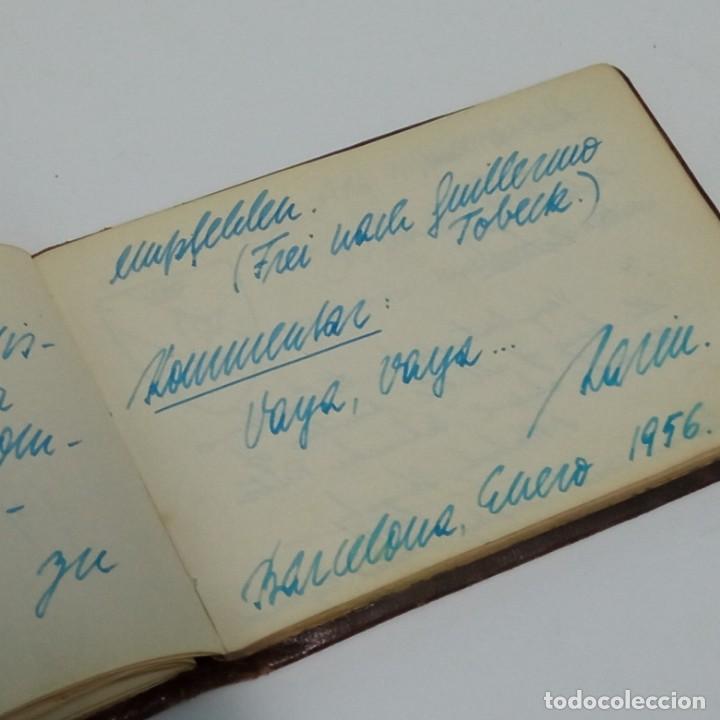 zu
empfehlen.
(Frei nach Guillermo
Tobeck.)
Kommentar:
Vaya, vaya... Karin.
Barcelona, Enero 1956.
todocoleccion